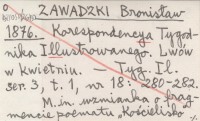 ZAWADZKI Bronisław
1876. Korespondencya Tygod-
nika Illustrowanego. Lwów
w kwietniu. – Tyg. Il.
ser. 3, t. 1, nr 18: 280-282.
M. in. wzmianka o frag-
mencie poematu „Kościelisko"